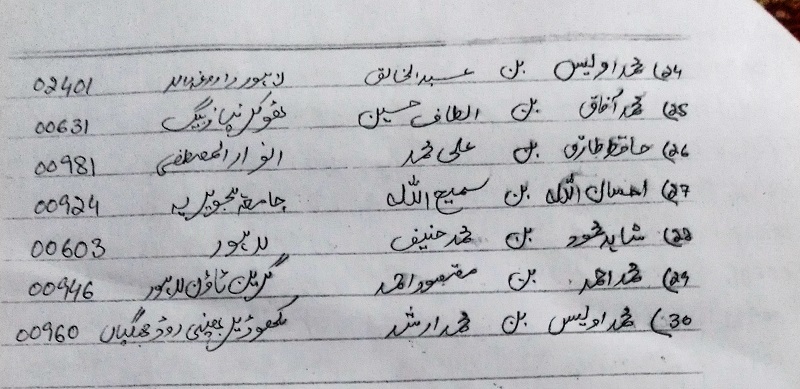 24) محمد اویس بن عبدالخالق لاہور داروغہ والا 02401
25) محمد آفاق بن الطاف حسین ٹھوکر نیاز بیگ 00631
26) حافظ طارق بن علی محمد انوار المصطفی 00981
27) احسان اللہ بن سمیع اللہ جامعہ ہجویریہ 00924
28) شاہد محمود بن محمد حنیف لاہور 00603
29) محمد احمد بن مقصود احمد گرین ٹاؤن لاہور 00946
30) محمد اویس بن محمد ارشد بھینی روڈ 00960